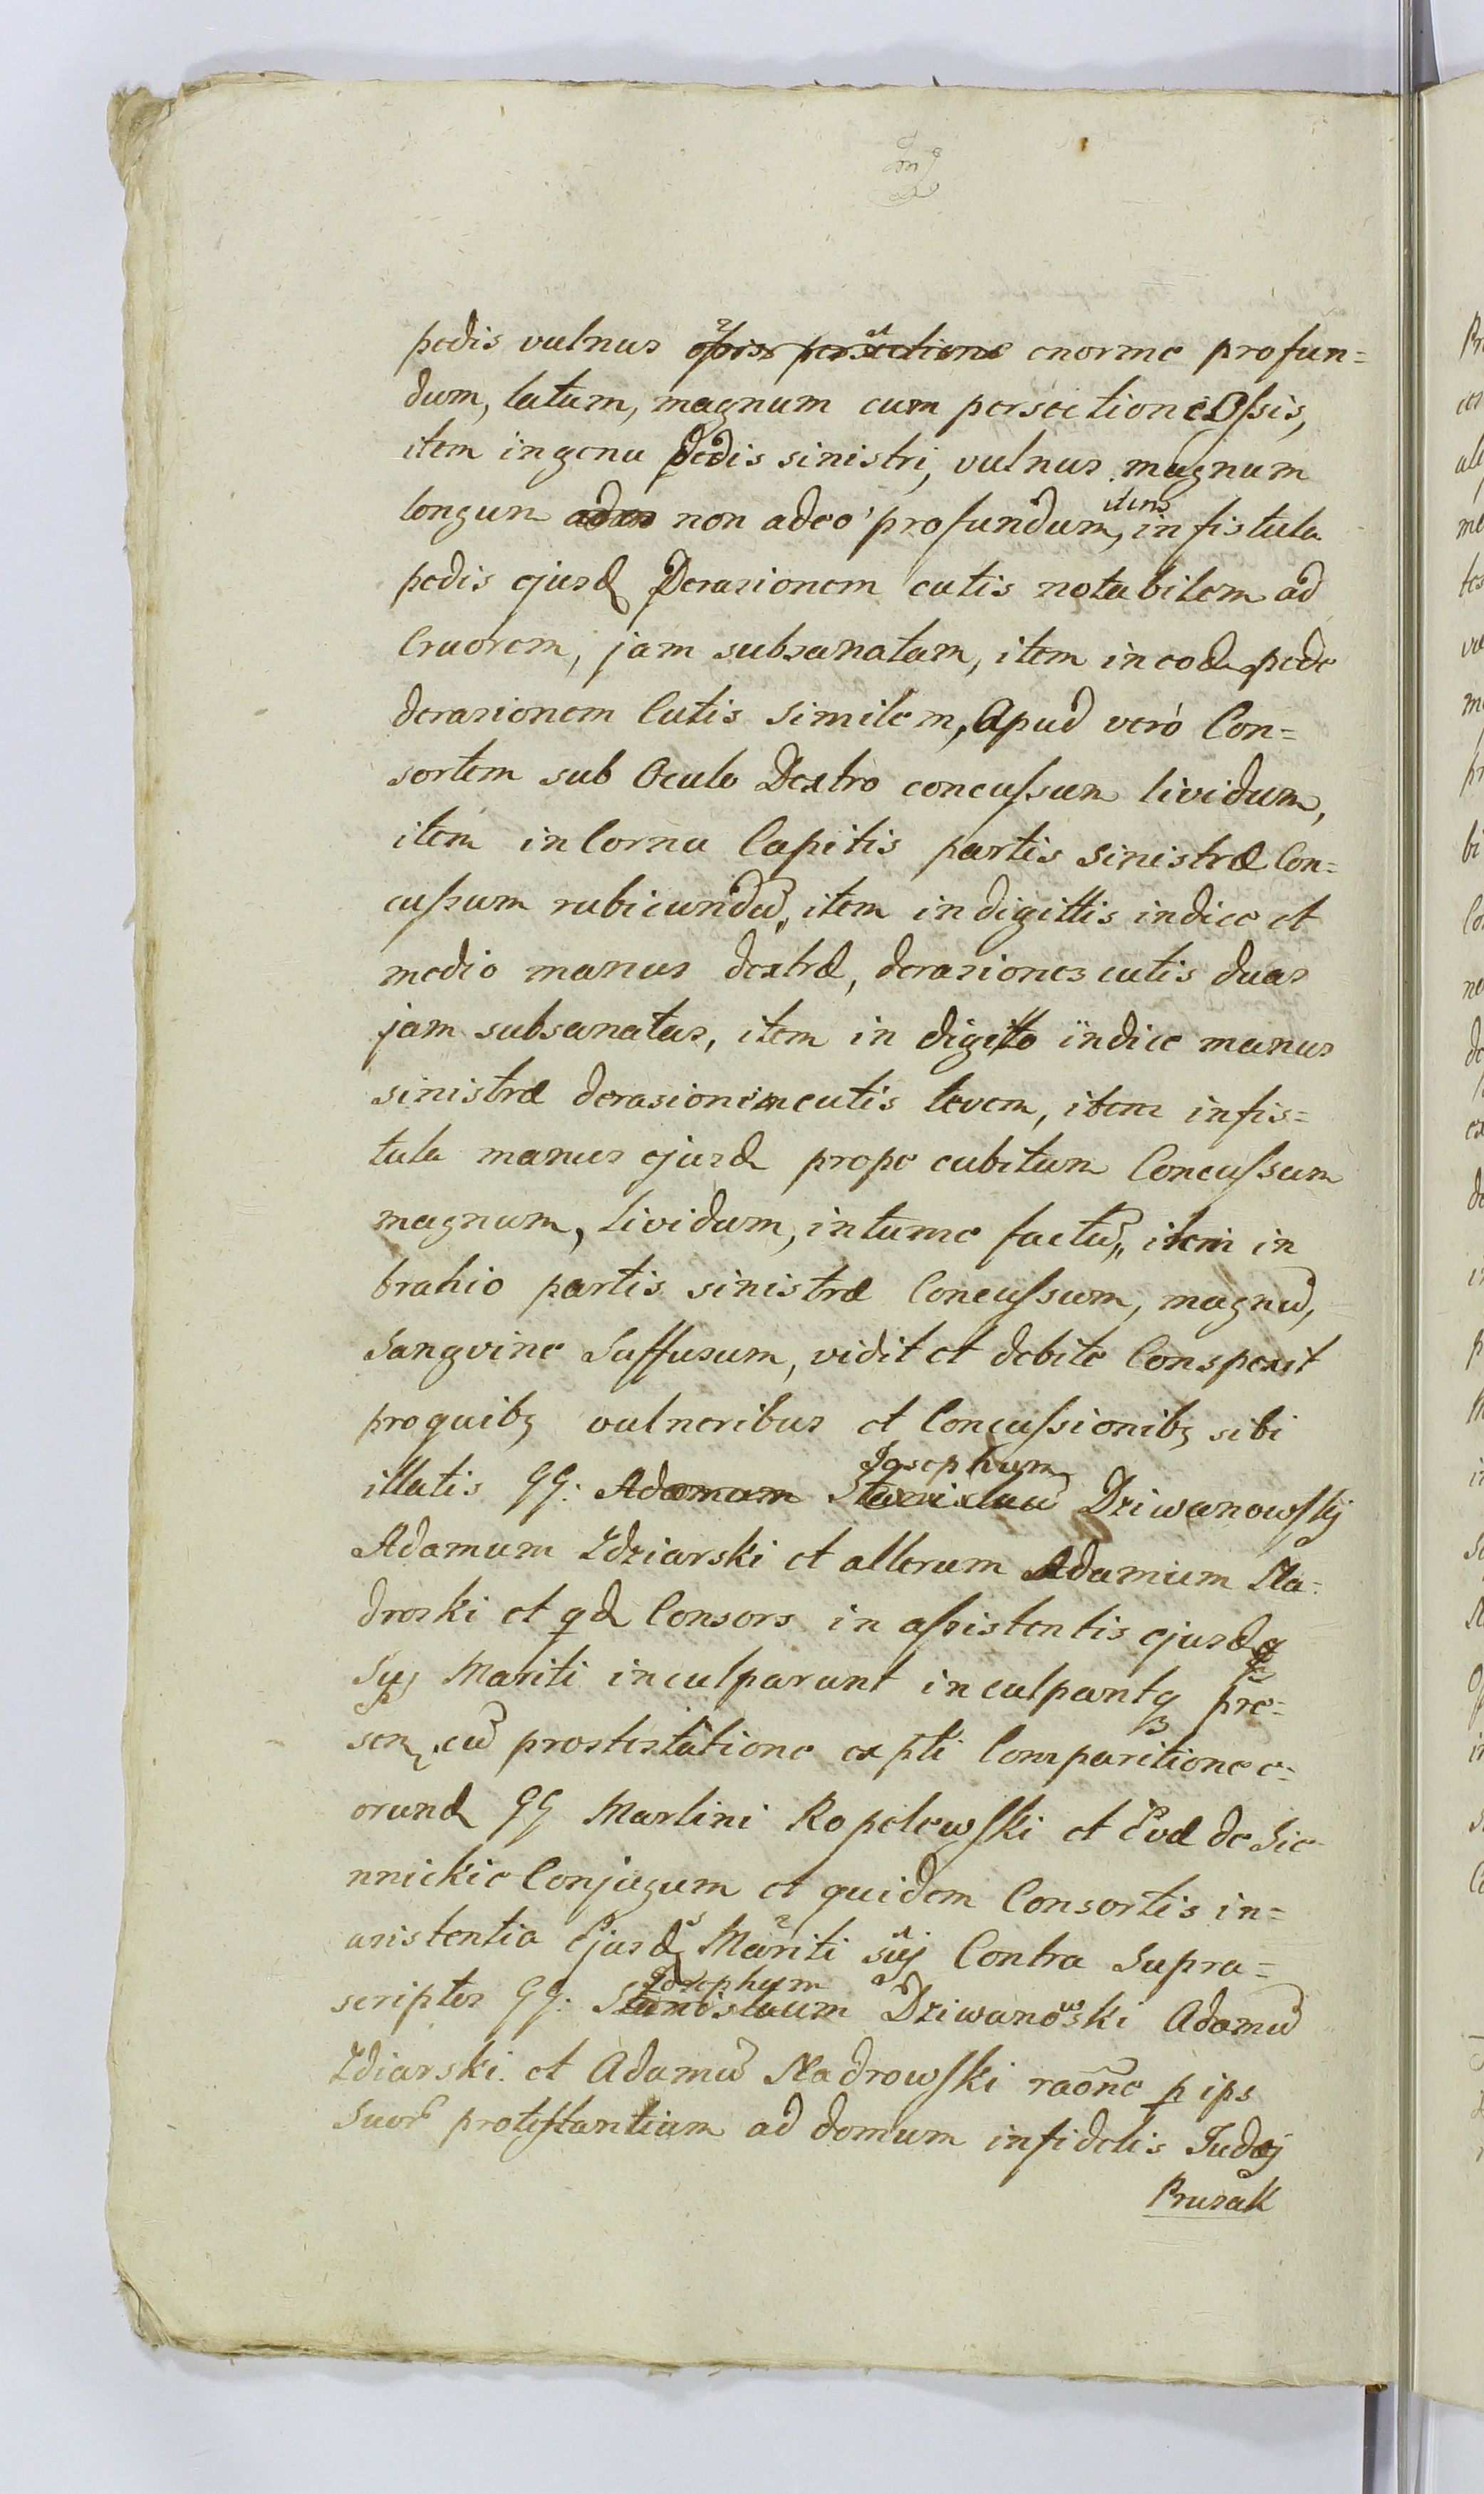 pedis vulnus ossis persectione enorme profun=
dum, latum, magnum cum persectione Ossis,
item in genu Pedis sinistri, vulnus magnum
longum adeo non adeo profundum, item in fistula
pedis ejusd Derasionem cutis notabilem ad
Cruorem, jam subsanatam, item in eod pede
derasionem Cutis similem, Apud verò Con=
sortem sub Oculo Dextro concussum lividum,
item in Cornu Capitis partis sinistræ Con=
cussum rubicundũ, item in digittis indice et
medio manus dextræ, derasiones cutis duas
jam subsanatas, item in digitto indice manus
sinistræ derasionem cutis levem, item in fis=
tula manus ejusd prope cubitum Concussum
magnum, lividum, intume factũ, item in
brahio partis sinistræ Concussum, magnũ,
Sangvine Suffusum, vidit et debite Conspexit
pro quibq vulneribus et Concussionibq sibi
illatis GG: Adamum Stanislaũ Josephum Dziwanowskj
Adamum Zdziarski et alterum Adamum Na=
droski et qd Consors in assistentis ejusd
Sui Mariti inculparunt inculpantq præ=
sen cũ prostestatione ex pti Comparitione e=
orund GG Martini Ropelewski et Evæ de Sie
nnickie Conjugum et quidem Consortis in=
asistentia Ejusd Mariti sui Contra Supra=
scriptos GG: Stanislaum Josephum Dziwanowski Adamũ
Zdiarski et Adamũ Nadrowski raõne p ips
Suor protestantium ad domum infidelis Judæj
Prusak